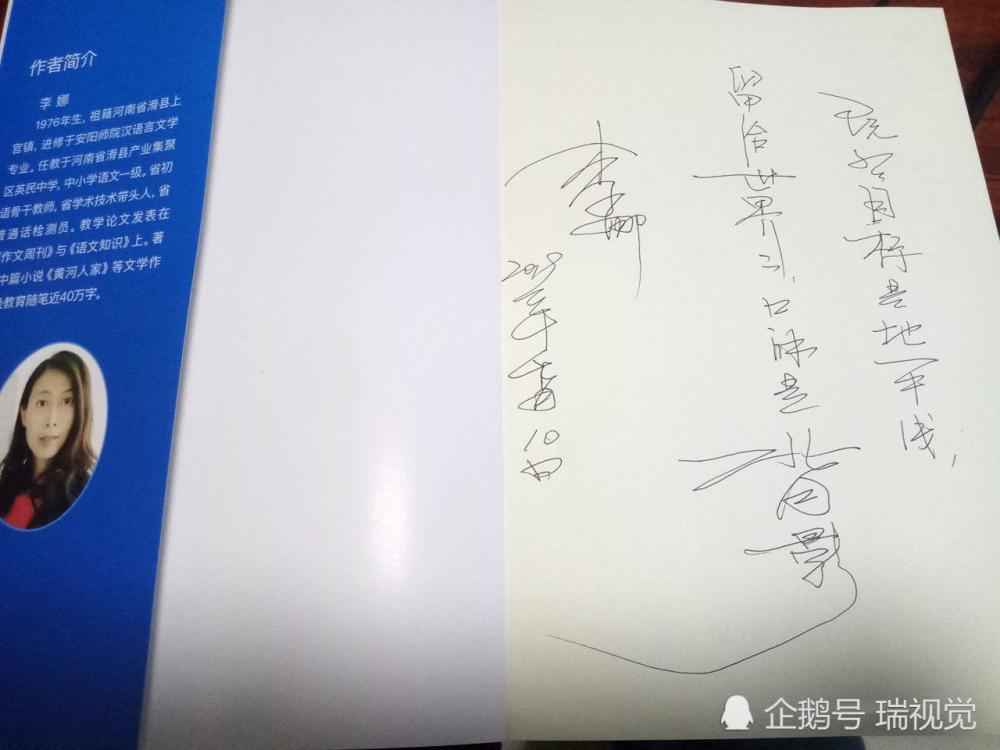 作者简介
李娜
1976年生，祖籍河南省滑县上
官镇，进修于安阳师院汉语言文学
专业。任教于河南省滑县产业集聚
区英民中学，中小学语文一级。省初
语骨干教师，省学术技术带头人，省
普通话检测员。教学论文发表在
作文周刊》与《语文知识》上。著
中篇小说《黄河人家》等文学作
及教育随笔近40万字。
既然目标是地平线，
留给世界的，只能是
背影
李娜
企鹅号 瑞视觉